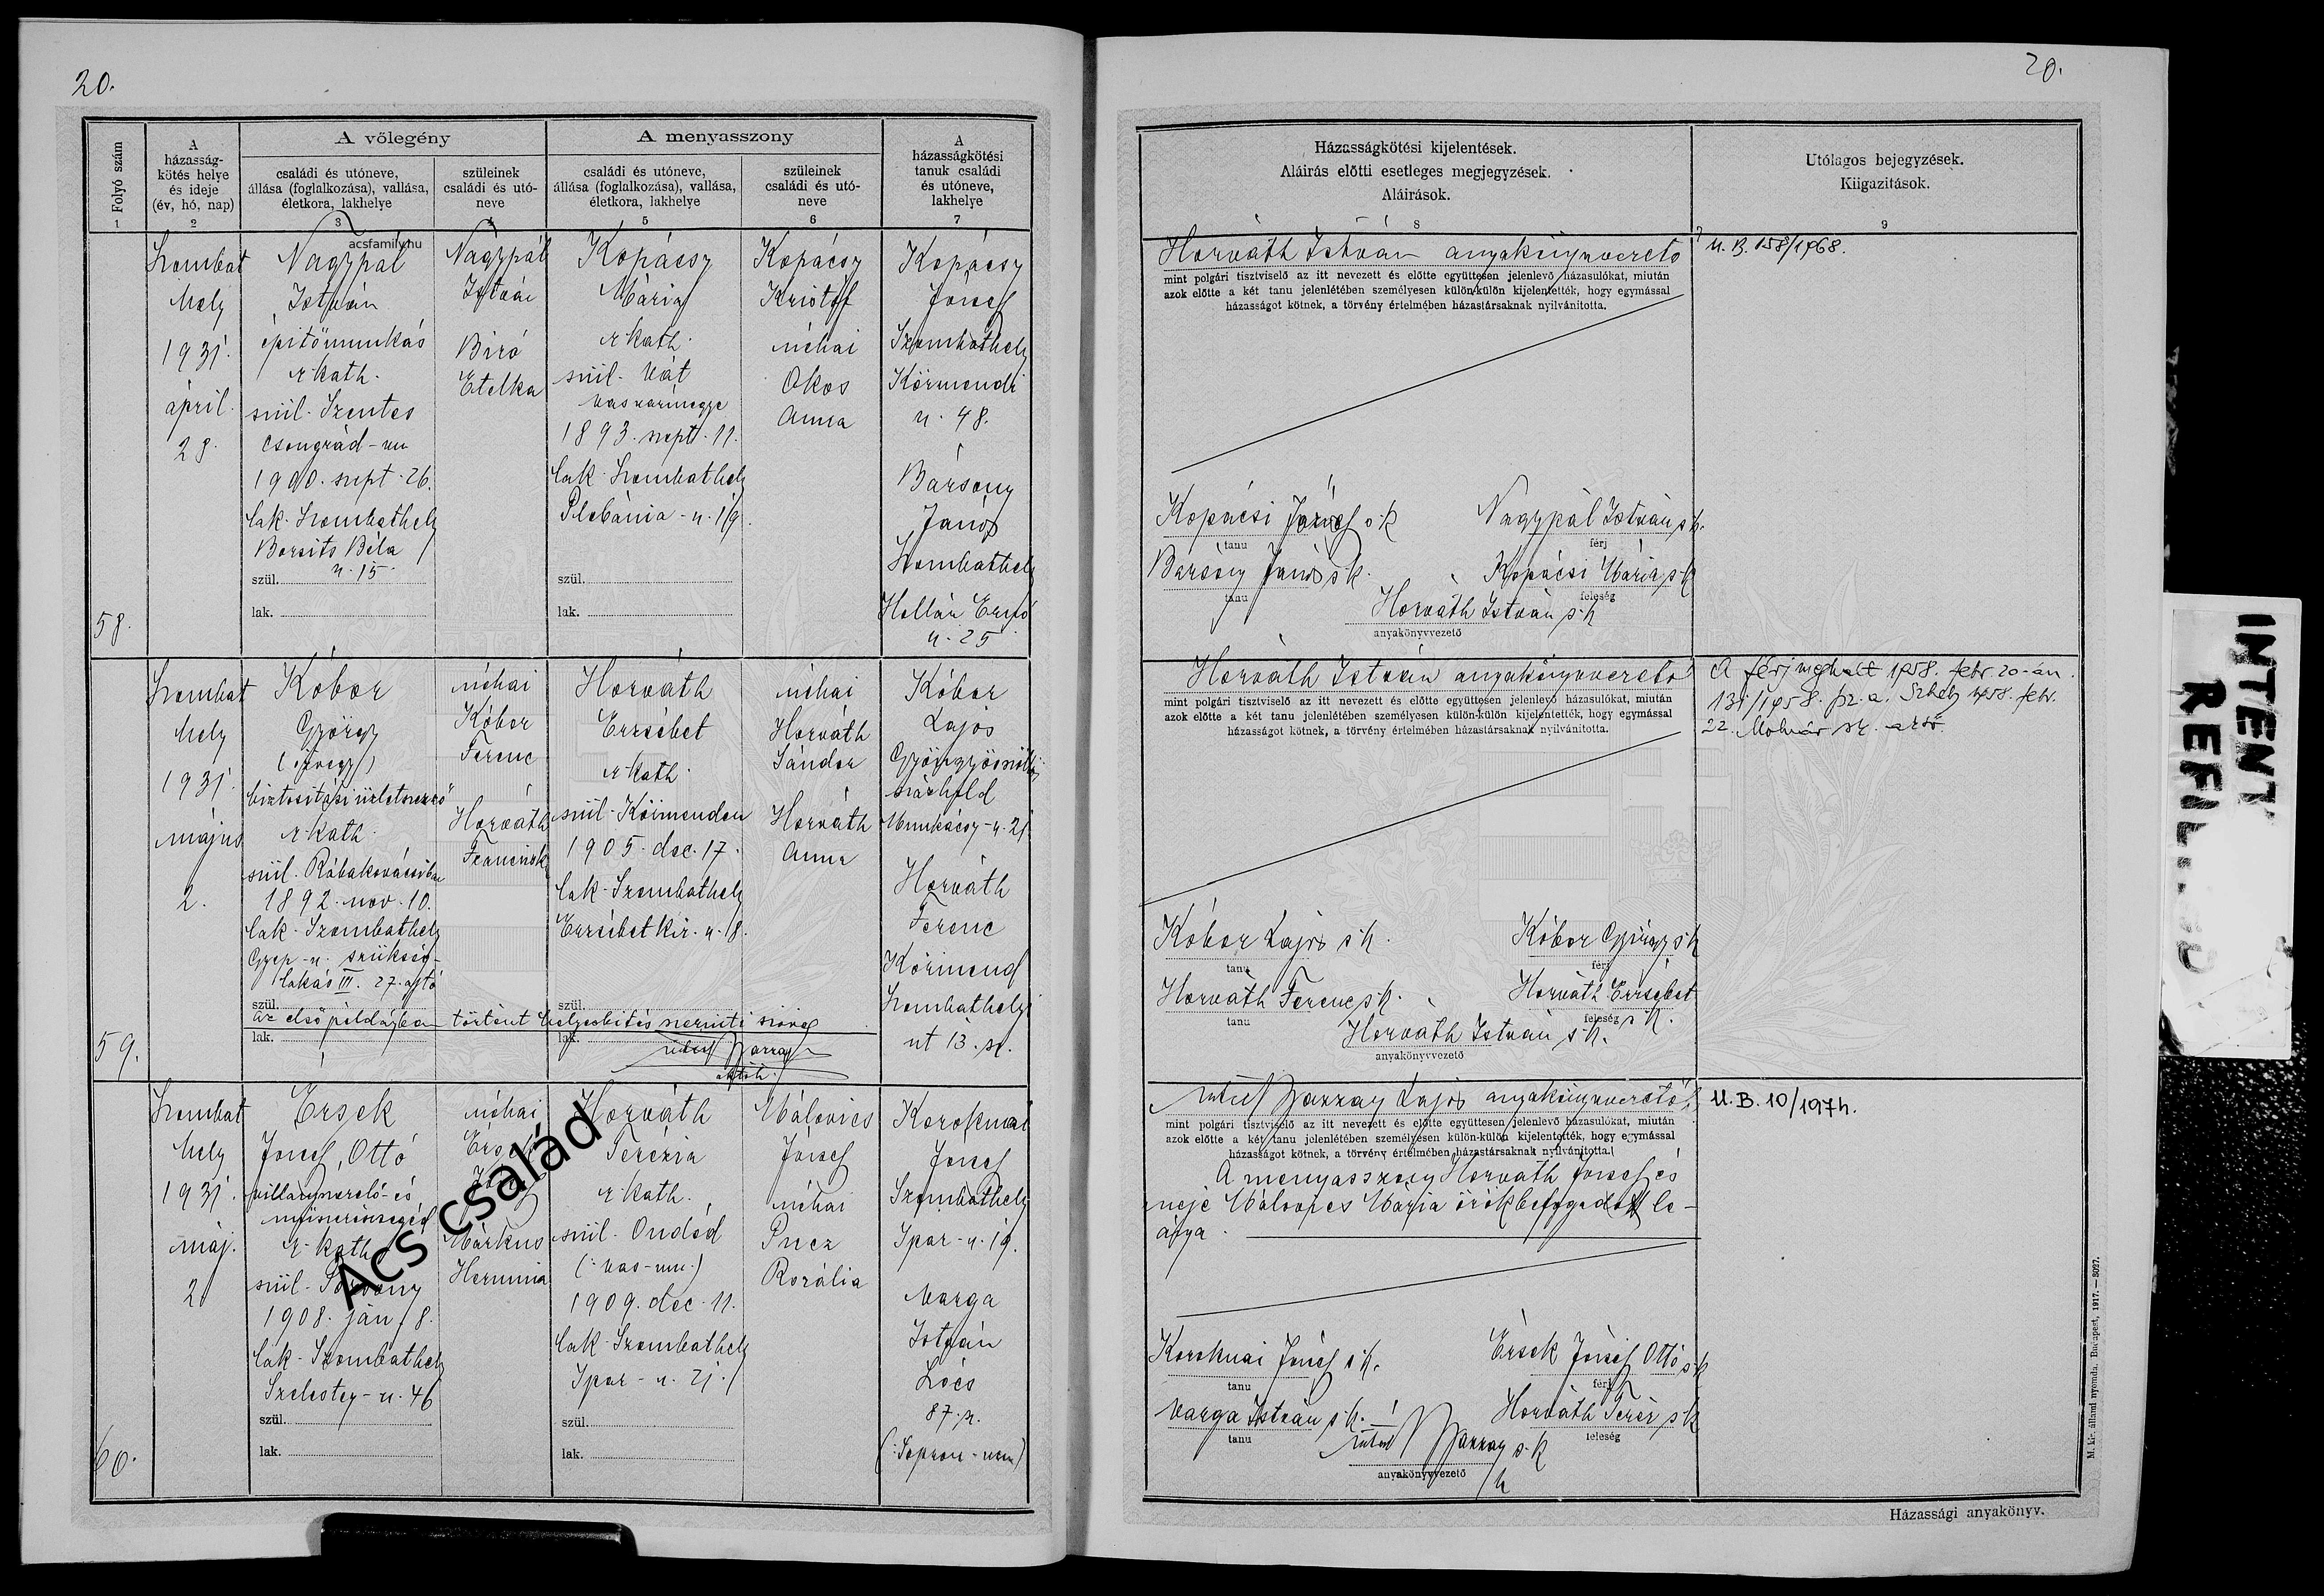 20.
20.
Folyó szám
A házasság-
kötés helye
és ideje
(év, hó, nap)
A vőlegény
családi és utóneve,
állása (foglalkozása), vallása,
életkora, lakhelye
szüleinek
családi és utó-
neve
A menyasszony
családi és utóneve,
állása (foglalkozása), vallása,
életkora, lakhelye
szüleinek
családi és utó-
neve
A
házasságkötési
tanuk családi
és utóneve,
lakhelye
1 2 3 4 5 6 7
acsfamily.hu
58.
Szombat
hely
1931.
ápril.
28.
Nagypál
István
építőmunkás
r. kath.
szül. Szentes
Csongrád-vm
1900. szept. 26.
lak. Szombathely
Borsits Béla
u. 15.
szül.
lak.
Nagypál
István
Biró
Etelka
Kopácsy
Mária
r. kath.
szül. Vát
Vasvármegye
1893. szept. 11.
lak. Szombathely
Plebánia-u. 19.
szül.
lak.
Kopácsy
Kristóf
néhai
Okos
Anna
Kopácsy
József
Szombathely
Körmendi
u. 48.
Bársony
János
Szombathely
Hollán Ernő
u. 25
59.
Szombat
hely
1931.
május
2.
Kóbor
György
(özvegy)
biztosítási üzletszerző
r. kath.
szül. Rábakovácsiban
1892. nov. 10.
lak. Szombathely
Gyep-u. szükség-
lakás III. 27. ajtó
szül.
lak.
néhai
Kóbor
Ferenc
Horváth
Franciska
Horváth
Erzsébet
r. kath.
szül. Körmenden
1905. dec. 17.
lak. Szombathely
Erzsébet kir. u. 18.
szül.
lak.
néhai
Horváth
Sándor
Horváth
Anna
Kóbor
Lajos
Gyöngyösszöllős
Munkácsy-u. 21.
Horváth
Ferenc
Körmend
Szombathelyi
ut 13. sz.
az első példányban történt helyesbítés szerinti szöveg
60.
Szombat
hely
1931.
máj.
2
Érsek
József, Ottó
villanyszerelő- és
műszerészsegéd
r. kath.
szül.
1908. jan. 8.
lak. Szombathely
Szelestey-u. 46
szül.
lak.
néhai
Érsek
Márkus
Hermina
Horváth
Terézia
r. kath.
szül. Ondód
(: Vas-vm.)
1909. dec. 11.
lak. Szombathely
Ipar-u. 21.
szül.
lak.
Málovics
József
néhai
Pucz
Rozália
Koroknai
József
Szombathely
Ipar-u. 19.
Varga
István
Lócs
87. sz.
(: Sopron-vm)
Ács család
Házasságkötési kijelentések.
Aláirás előtti esetleges megjegyzések.
Aláirások.
8
Utólagos bejegyzések.
Kiigazitások.
9
Horváth István anyakönyvvezető
mint polgári tisztviselő az itt nevezett és előtte együttesen jelenlevő házasulókat, miután
azok előtte a két tanu jelenlétében személyesen külön-külön kijelentették, hogy egymással
házasságot kötnek, a törvény értelmében házastársaknak nyilvánitotta.
U. B. 158/1968.
Kopácsi József s. k. Nagypál István s. k.
tanu férj
Bársony János s. k. Kopácsi Mária s. k
tanu feleség
Horváth István s. k
anyakönyvvezető
Horváth István anyakönyvvezető
mint polgári tisztviselő az itt nevezett és előtte együttesen jelenlevő házasulókat, miután
azok előtte a két tanu jelenlétében személyesen külön-külön kijelentették, hogy egymással
házasságot kötnek, a törvény értelmében házastársaknak nyilvánitotta.
A férj meghalt 1958. febr. 20-án.
131/1958. hr. a. Szhely 1958. febr.
22. Molnár sk.
Kóbor Lajos s. k. Kóbor György s k
tanu férj
Horváth Ferenc s k. Horváth Erzsébet
tanu feleség s k.
Horváth István s. k.
anyakönyvvezető
Lajos anyakönyvvezető
mint polgári tisztviselő az itt nevezett és előtte együttesen jelenlevő házasulókat, miután
azok előtte a két tanu jelenlétében személyesen külön-külön kijelentették, hogy egymással
házasságot kötnek, a törvény értelmében házastársaknak nyilvánitotta.
U. B. 10/1974.
A menyasszony Horváth József és
neje Málovics Mária örökbefogadott le-
ánya.
Koroknai József s. k. Érsek József Ottó s k
tanu férj
Varga István s. k. Horváth Teréz s k
tanu feleség
s. k
anyakönyvvezető
M. kir. állami nyomda. Budapest, 1917. — 3027.
Házassági anyakönyv.
INTENT